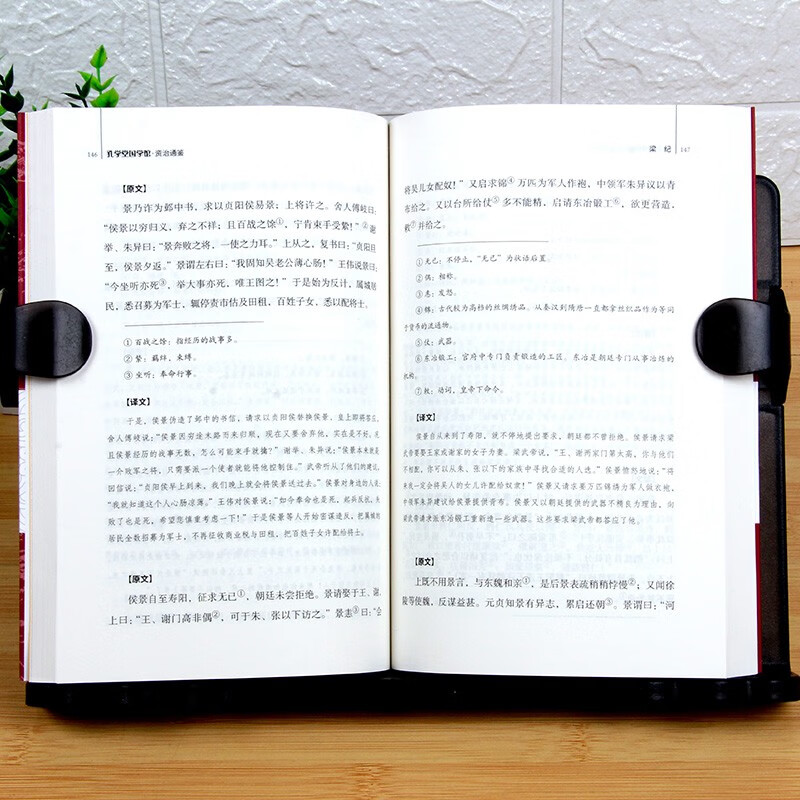 146
孔学堂国学馆·资治通鉴
【原文】
景乃诈为邺中书，求以贞阳侯易景；上将许之。舍人傅岐曰：
“侯景以穷归义，弃之不祥；且百战之馀①，宁肯束手受絷！”②谢
举、朱异曰：“景奔败之将，一使之力耳。”上从之，复书曰：“贞阳旦
至，侯景夕返。”景谓左右曰：“我固知吴老公薄心肠！”王伟说景曰：
“今坐听亦死③，举大事亦死，唯王图之！”于是始为反计，属城居
民，悉召募为军士，辄停责市估及田租，百姓子女，悉以配将士。
① 百战之馀：指经历的战事多。
② 絷：羁绊，束缚。
③ 坐听：奉命行事。
【译文】
于是，侯景伪造了邺中的书信，请求以贞阳侯替换侯景，皇上即将答应。
舍人傅岐说：“侯景因穷途末路而来归顺，现在又要舍弃他，实在是不好。且
且侯景经历的战事无数，怎么可能束手就擒？”谢举、朱异说：“侯景本来就是
一介败军之将，只需要派一个使者就能将他控制住。”武帝听从了他们的建议，
回信说：“贞阳侯早上到来，我们晚上就会将侯景送过去。”侯景对身边的人说：
“我就知道这个人心肠凉薄。”王伟对侯景说：“如今奉命也是死，起兵反抗，失
败了也是死，希望您慎重考虑一下！”于是侯景等人开始密谋造反，把属城的
居民全数招募为军士，不再征收商业税与田租，把百姓子女许配给将士。
【原文】
侯景自至寿阳，征求无已①，朝廷未尝拒绝。景请娶于王、谢，
上曰：“王、谢门高非偶②，可于朱、张以下访之。”景恚③曰：“会
梁 纪
147
将吴儿女配奴！”又启求锦④万匹为军人作袍，中领军朱异议以青
布给之。又以台所给仗⑤多不能精，启请东冶锻工⑥，欲更营造，
敕⑦并给之。
① 无已：不停止，“无已”为状语后置。
② 偶：相称。
③ 恚：发怒。
④ 锦：古代较为高档的丝绸绣品。从秦汉到隋唐一直都拿丝织品作为等同
于货币的流通物。
⑤ 仗：武器。
⑥ 东冶锻工：官府中专门负责锻造的工匠。东冶是朝廷专门从事冶炼的
机构。
⑦ 敕：动词，皇帝下命令。
【译文】
侯景自从来到了寿阳，就不停地提出要求，朝廷都不曾拒绝。侯景请求梁
武帝要娶王家或谢家的女子为妻。梁武帝说：“王、谢两家门第太高，你与他们
不相配，你可以从朱、张以下的家族中寻找合适的人选。”侯景愤怒地说：“将
来我一定会将吴人的女儿许配给奴隶！”侯景又请求要万匹锦缎为军人做衣袍，
中领军朱异建议给侯景提供青布。侯景又以朝廷提供的武器不精良为理由，向
梁武帝请求派东冶锻工重新造一些武器。这些要求梁武帝都答应了他。
【原文】
上既不用景言，与东魏和亲①，是后景表疏稍稍悖慢②；又闻徐
陵等使魏，反谋益甚。元贞知景有异志，累启还朝③。景谓曰：“河